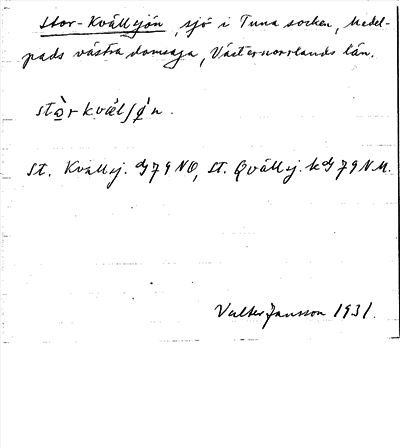 Stor-Kvällsjön, sjö i Tuna socken, Medel-
pads västra domsaga, Västernorrlands län.
St. Kvällsj. G79NO, St. Qvällsj. kG79NM.
Valter Jansson 1931.